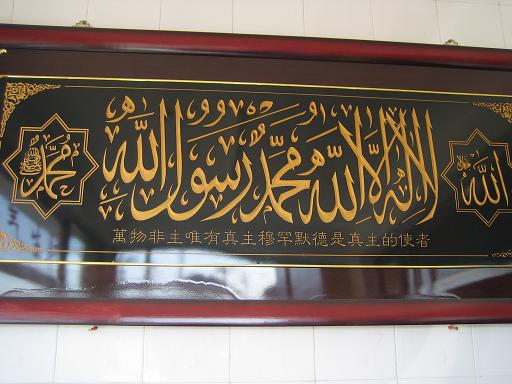 الله
لا اله الا الله محمد رسول الله
محمد
萬物非主唯有真主穆罕默德是真主的使者